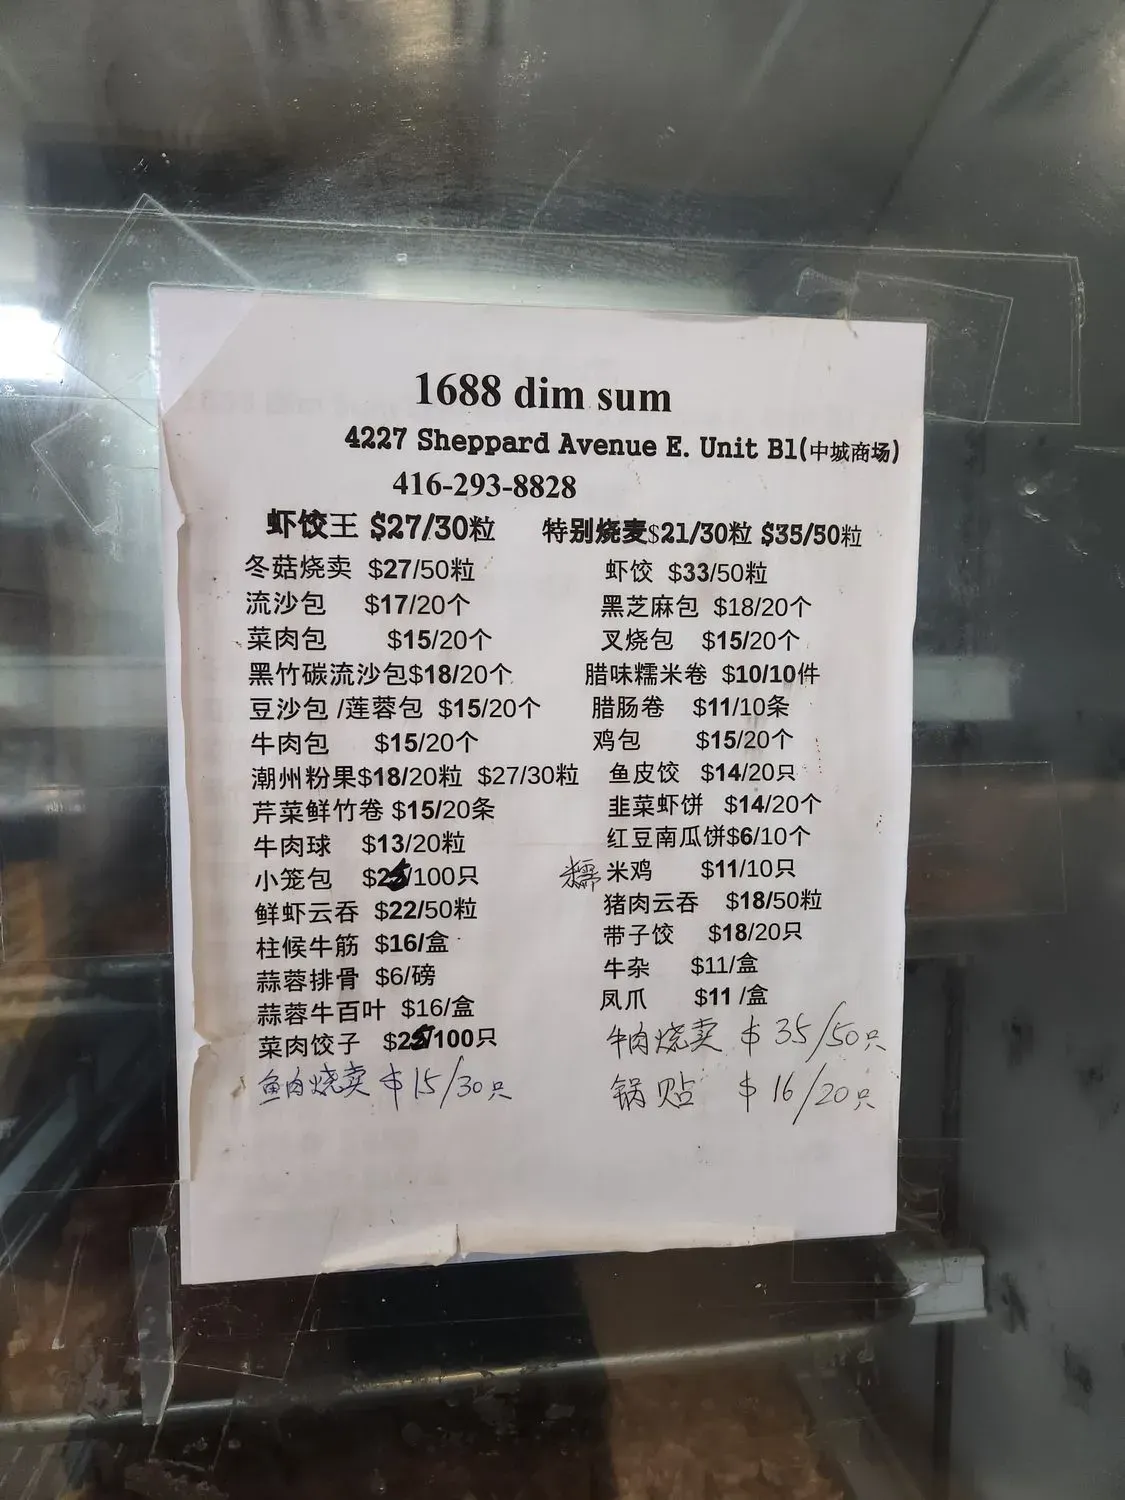 1688 dim sum
4227 Sheppard Avenue E. Unit B1(中城商场)
416-293-8828
虾饺王 $27/30粒 特别烧麦$21/30粒 $35/50粒
冬菇烧卖 $27/50粒 虾饺 $33/50粒
流沙包 $17/20个 黑芝麻包 $18/20个
菜肉包 $15/20个 叉烧包 $15/20个
黑竹碳流沙包$18/20个 腊味糯米卷 $10/10件
豆沙包 /莲蓉包 $15/20个 腊肠卷 $11/10条
牛肉包 $15/20个 鸡包 $15/20个
潮州粉果$18/20粒 $27/30粒 鱼皮饺 $14/20只
芹菜鲜竹卷 $15/20条 韭菜虾饼 $14/20个
牛肉球 $13/20粒 红豆南瓜饼$6/10个
小笼包 /100只 糯米鸡 $11/10只
鲜虾云吞 $22/50粒 猪肉云吞 $18/50粒
柱候牛筋 $16/盒 带子饺 $18/20只
蒜蓉排骨 $6/磅 牛杂 $11/盒
蒜蓉牛百叶 $16/盒 凤爪 $11 /盒
菜肉饺子 /100只 牛肉烧卖 $35/50只
鱼肉烧卖 $15/30只 锅贴 $16/20只